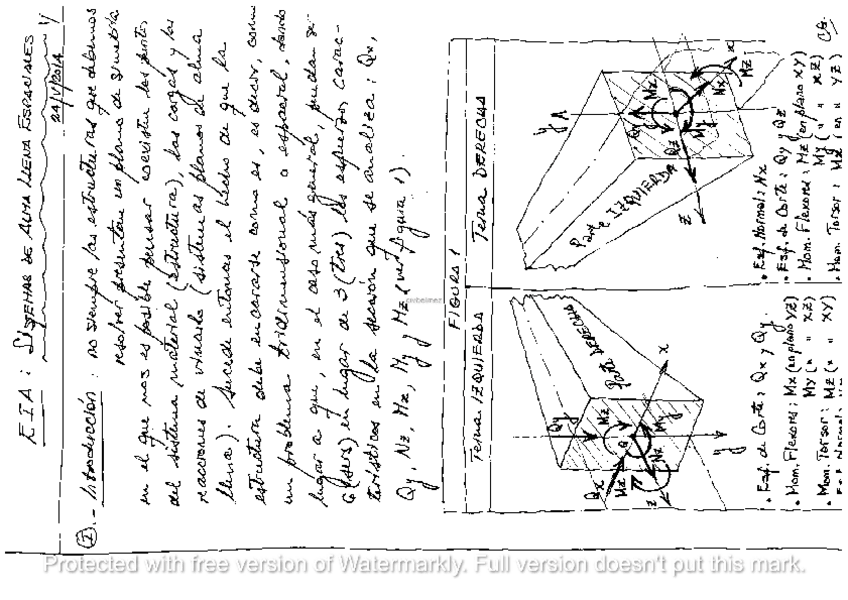 EIA : SISTEMAS DE ALMA LLENA ESPACIALES 1/
24/V/2014
I .- Introducción : no siempre las estructuras que debemos
resolver presentan un plano de simetría
en el que nos es posible pensar coexisten los entes
del sistema material (estructura), las cargas y las
reacciones de vínculo (sistemas planos de alma
llena). Sucede entonces el hecho de que la
estructura debe encararse como es, es decir, como
un problema tridimensional o espacial, dando
lugar a que, en el caso más general, puedan se-
6 (seis) en lugar de 3 (tres) los esfuerzos carac-
terísticos en la sección que se analiza : Qx,
Qy, Nz, Mx, My y Mz (ver figura 1).
FIGURA 1
Terna IZQUIERDA
Terna DERECHA
Parte DERECHA
Qy
Qx
Mz
Mx
My
Nz
G
x
y
z
• Esf. de Corte : Qx y Qy.
• Mom. Flexores : Mx (en plano YZ)
My (" " XZ)
• Mom. Torsor : Mz (" " XY)
Parte IZQUIERDA
y
Qy
Mx
My
Qz
Nx
Mz
x
z
• Esf. Normal : Nx
• Esf. de Corte : Qy y Qz
• Mom. Flexores : Mz (en plano XY)
My (" " XZ)
• Mom. Torsor : Mx (en " YZ)
civilestimed
Protected with free version of Watermarkly. Full version doesn't put this mark.